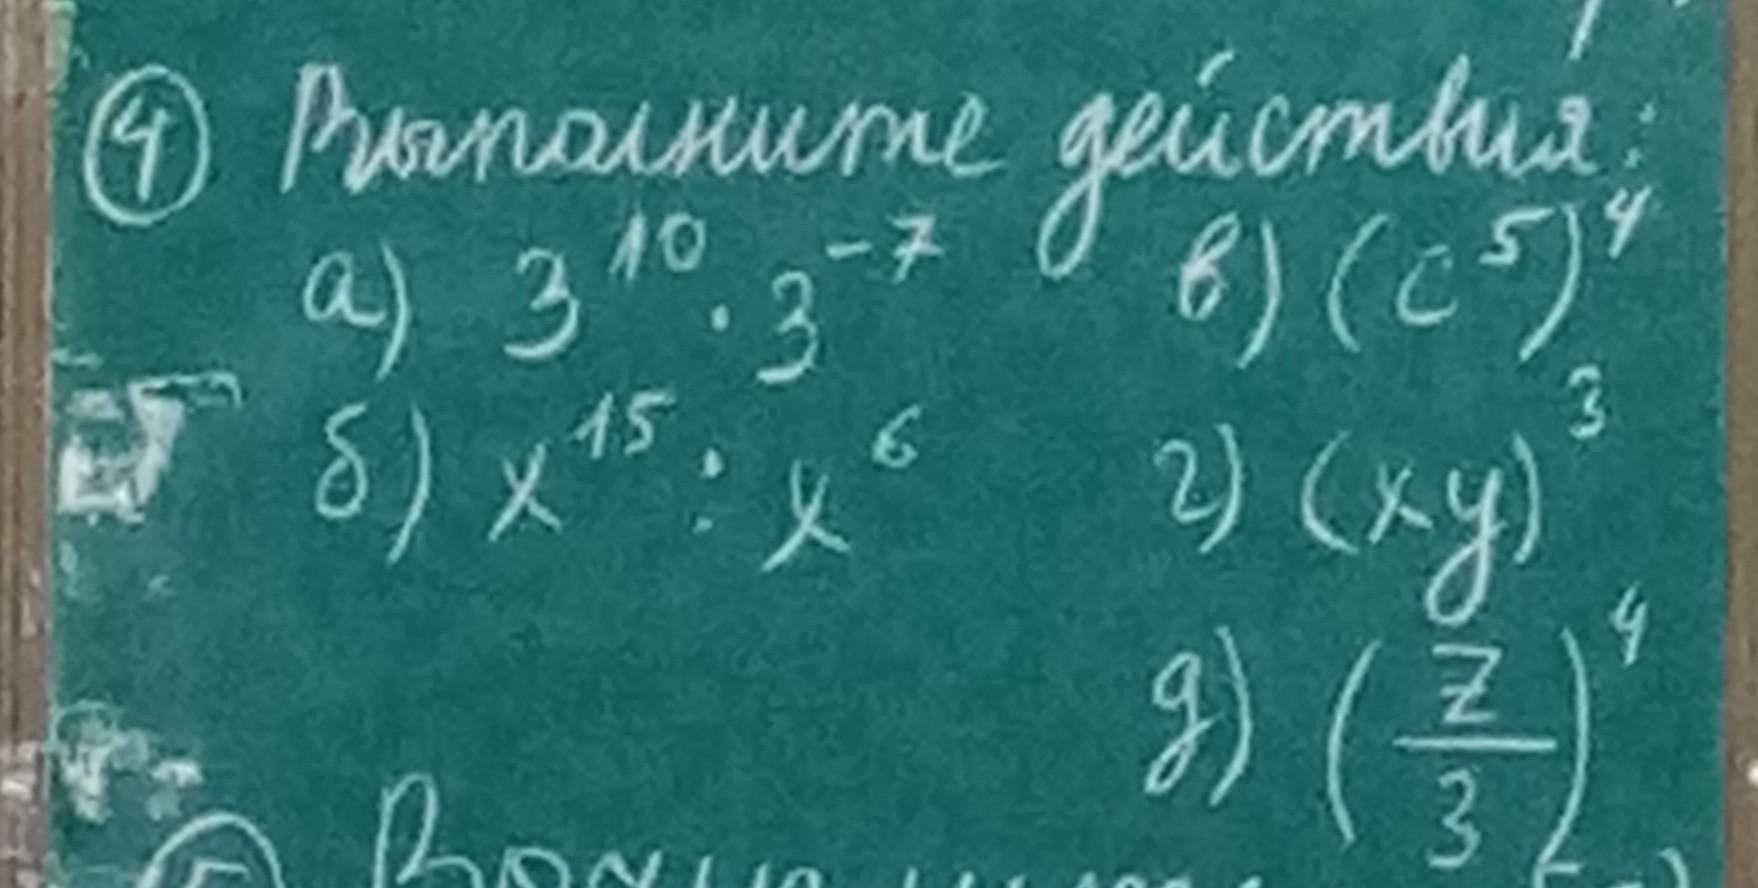 ④ Выполните действия:
а) 3¹⁰ · 3⁻⁷ в) (c⁵)⁴
б) x¹⁵ : x⁶ г) (xy)³
д) (z/3)⁴